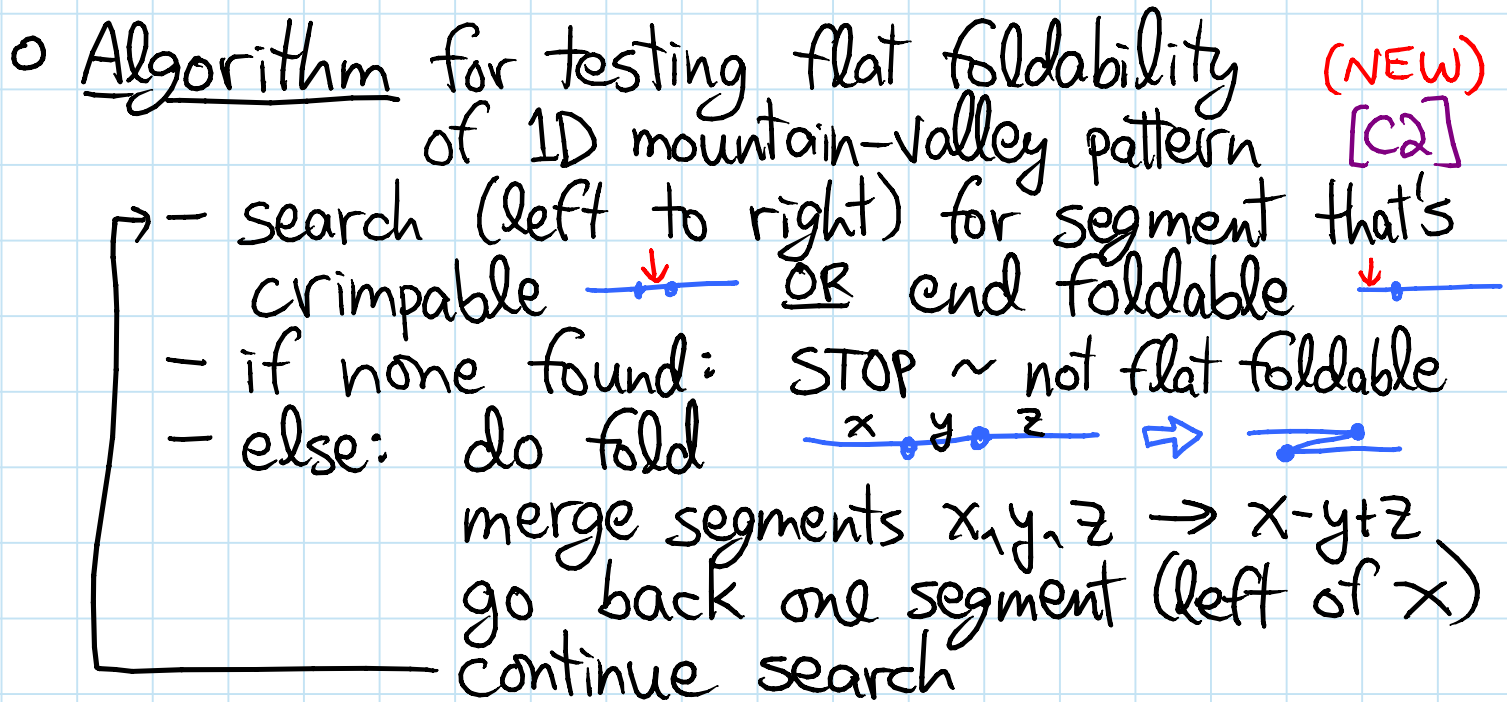 ○ Algorithm for testing flat foldability (NEW)
of 1D mountain-valley pattern [C2]
- search (left to right) for segment that's
crimpable OR end foldable
- if none found: STOP ~ not flat foldable
- else: do fold x y z
merge segments x, y, z → x-y+z
go back one segment (left of x)
continue search